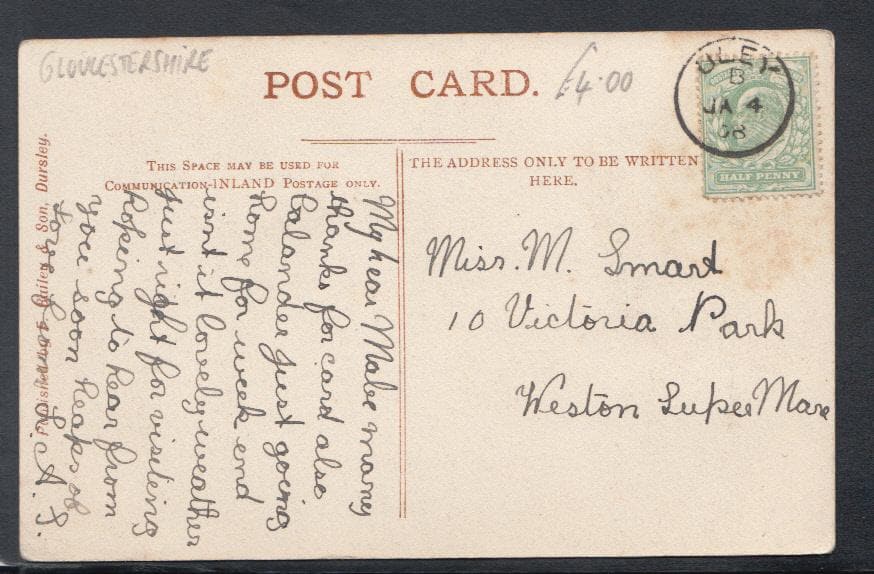 GLOUCESTERSHIRE
POST CARD.
£4.00
ULEY
B
JA 4
08
HALF PENNY
THIS SPACE MAY BE USED FOR
COMMUNICATION-INLAND POSTAGE ONLY.
THE ADDRESS ONLY TO BE WRITTEN
HERE.
My dear Mabe many
thanks for card also
calander just going
home for week end
isnt it lovely weather
just right for visiting
hoping to hear from
you soon heaps of
Love from L. A. F.
Miss. M. Smart
10 Victoria Park
Weston Super Mare
Published by Bailey & Son, Dursley.